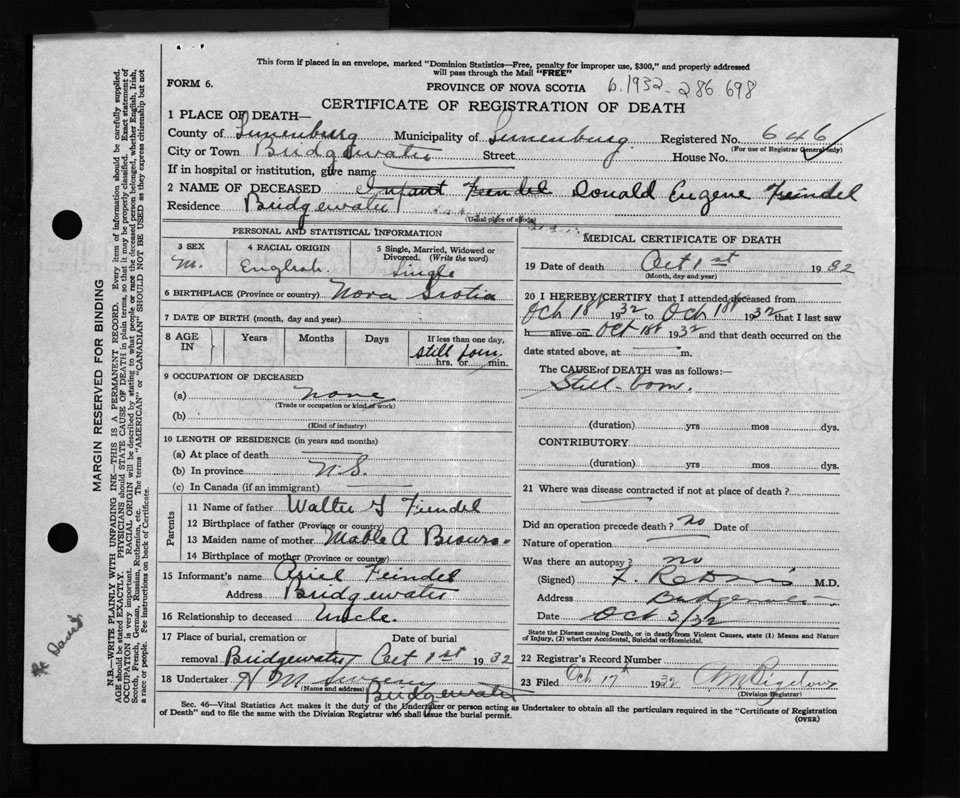 This form if placed in an envelope, marked "Dominion Statistics—Free, penalty for improper use, $300," and properly addressed
will pass through the Mail "FREE"
FORM 6. PROVINCE OF NOVA SCOTIA 6.1932-286 698
CERTIFICATE OF REGISTRATION OF DEATH
1 PLACE OF DEATH—
County of Lunenburg Municipality of Lunenburg. Registered No. 646
(For use of Registrar General only)
City or Town Bridgewater Street House No.
If in hospital or institution, give name
2 NAME OF DECEASED Infant Feindel Donald Eugene Feindel
Residence Bridgewater
(Usual place of abode)
PERSONAL AND STATISTICAL INFORMATION
3 SEX 4 RACIAL ORIGIN 5 Single, Married, Widowed or Divorced. (Write the word)
M. English. Single
6 BIRTHPLACE (Province or country) Nova Scotia
7 DATE OF BIRTH (month, day and year)
8 AGE IN Years Months Days If less than one day,
still born
hrs. or min.
9 OCCUPATION OF DECEASED
(a) none
(Trade or occupation or kind of work)
(b)
(Kind of industry)
10 LENGTH OF RESIDENCE (in years and months)
(a) At place of death
(b) In province N.S.
(c) In Canada (if an immigrant)
Parents
11 Name of father Walter Feindel
12 Birthplace of father (Province or country)
13 Maiden name of mother Mable A
14 Birthplace of mother (Province or country)
15 Informant's name Feindel
Address Bridgewater
16 Relationship to deceased Uncle.
17 Place of burial, cremation or Date of burial
removal Bridgewater Oct 1st 1932
18 Undertaker H M
(Name and address) Bridgewater
MEDICAL CERTIFICATE OF DEATH
19 Date of death Oct 1st 1932
(Month, day and year)
20 I HEREBY CERTIFY that I attended deceased from
Oct 1st 1932 to Oct 1st 1932 that I last saw
h alive on Oct 1st 1932 and that death occurred on the
date stated above, at m.
The CAUSE of DEATH was as follows:—
Still-born.
(duration) yrs mos dys.
CONTRIBUTORY
(duration) yrs mos dys.
21 Where was disease contracted if not at place of death?
?
Did an operation precede death? no Date of
Nature of operation
Was there an autopsy? no
(Signed) M.D.
Address Bridgewater
Date Oct 3/32
State the Disease causing Death, or in death from Violent Causes, state (1) Means and Nature
of Injury, (2) whether Accidental, Suicidal or Homicidal.
22 Registrar's Record Number
23 Filed Oct 17th 1932
(Division Registrar)
Sec. 46—Vital Statistics Act makes it the duty of the Undertaker or person acting as Undertaker to obtain all the particulars required in the "Certificate of Registration
of Death" and to file the same with the Division Registrar who shall issue the burial permit. (OVER)
MARGIN RESERVED FOR BINDING
N.B.—WRITE PLAINLY WITH UNFADING INK—THIS IS A PERMANENT RECORD. Every item of information should be carefully supplied.
AGE should be stated EXACTLY. PHYSICIANS should STATE CAUSE OF DEATH in plain terms, so that it may be properly classified. Exact statement of
OCCUPATION is very important. RACIAL ORIGIN will be described by stating to what people or race the deceased person belonged, whether English, Irish,
Scotch, French, German, Russian, Ruthenian, etc. The terms "AMERICAN" or "CANADIAN" SHOULD NOT BE USED as they express citizenship but not
a race or people. See instructions on back of Certificate.